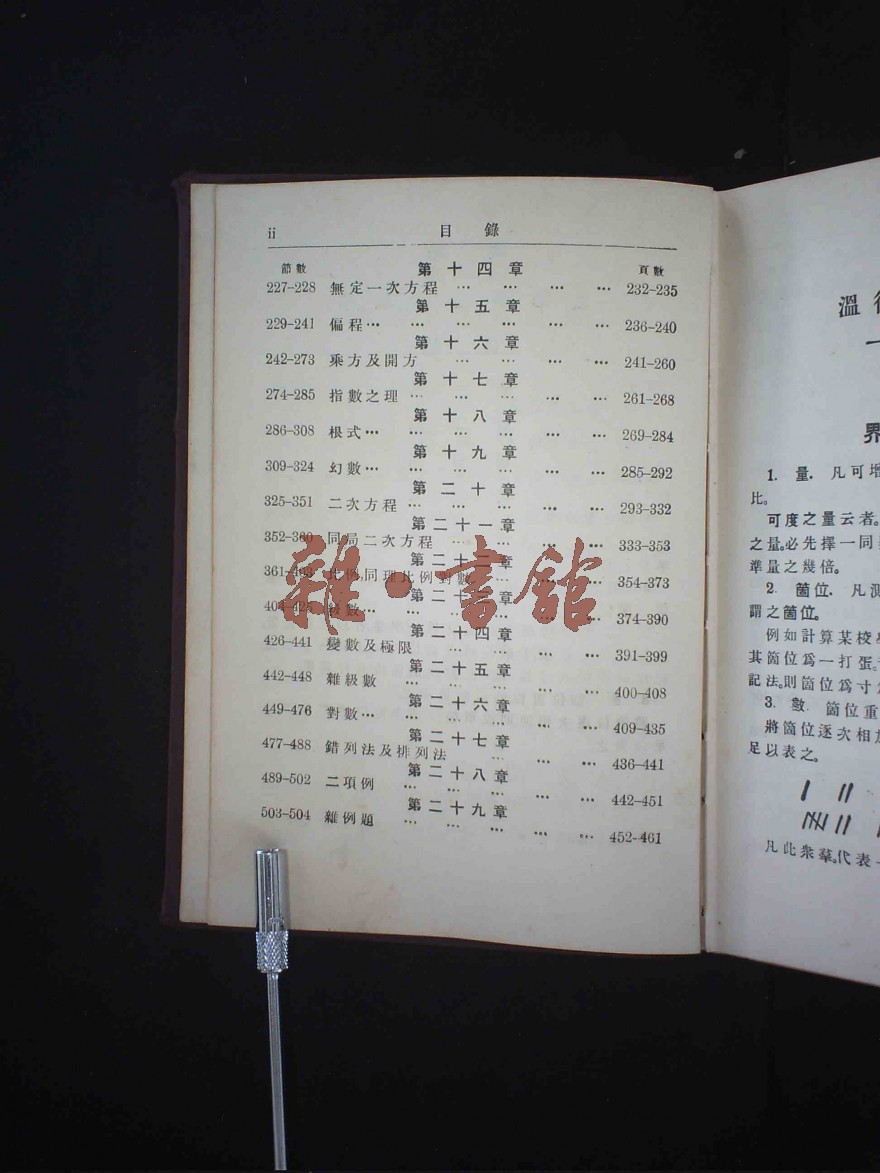 ii 目錄
節數 第十四章 頁數
227–228 無定一次方程 … … … … 232–235
第十五章
229–241 偏程… … … … … … 236–240
第十六章
242–273 乘方及開方 … … … … 241–260
第十七章
274–285 指數之理 … … … … … 261–268
第十八章
286–308 根式… … … … … … 269–284
第十九章
309–324 幻數… … … … … … 285–292
第二十章
325–351 二次方程 … … … … … 293–332
第二十一章
352–360 同局二次方程 … … … … 333–353
第二十二章
361–403 比例同理比例對數 … … … 354–373
第二十三章
404–425 級數… … … … … 374–390
第二十四章
426–441 變數及極限 … … … … 391–399
第二十五章
442–448 雜級數 … … … … … 400–408
第二十六章
449–476 對數… … … … … … 409–435
第二十七章
477–488 錯列法及排列法 … … … 436–441
第二十八章
489–502 二項例 … … … … … … 442–451
第二十九章
503–504 雜例題 … … … … … 452–461
雜·書館
溫
一
界
1. 量. 凡可增
比。
可度之量云者。
之量。必先擇一同
準量之幾倍。
2. 箇位. 凡測
謂之箇位。
例如計算某校
其箇位爲一打蛋。
記法。則箇位爲寸
3. 數. 箇位重
將箇位逐次相加
足以表之。
凡此衆羣。代表